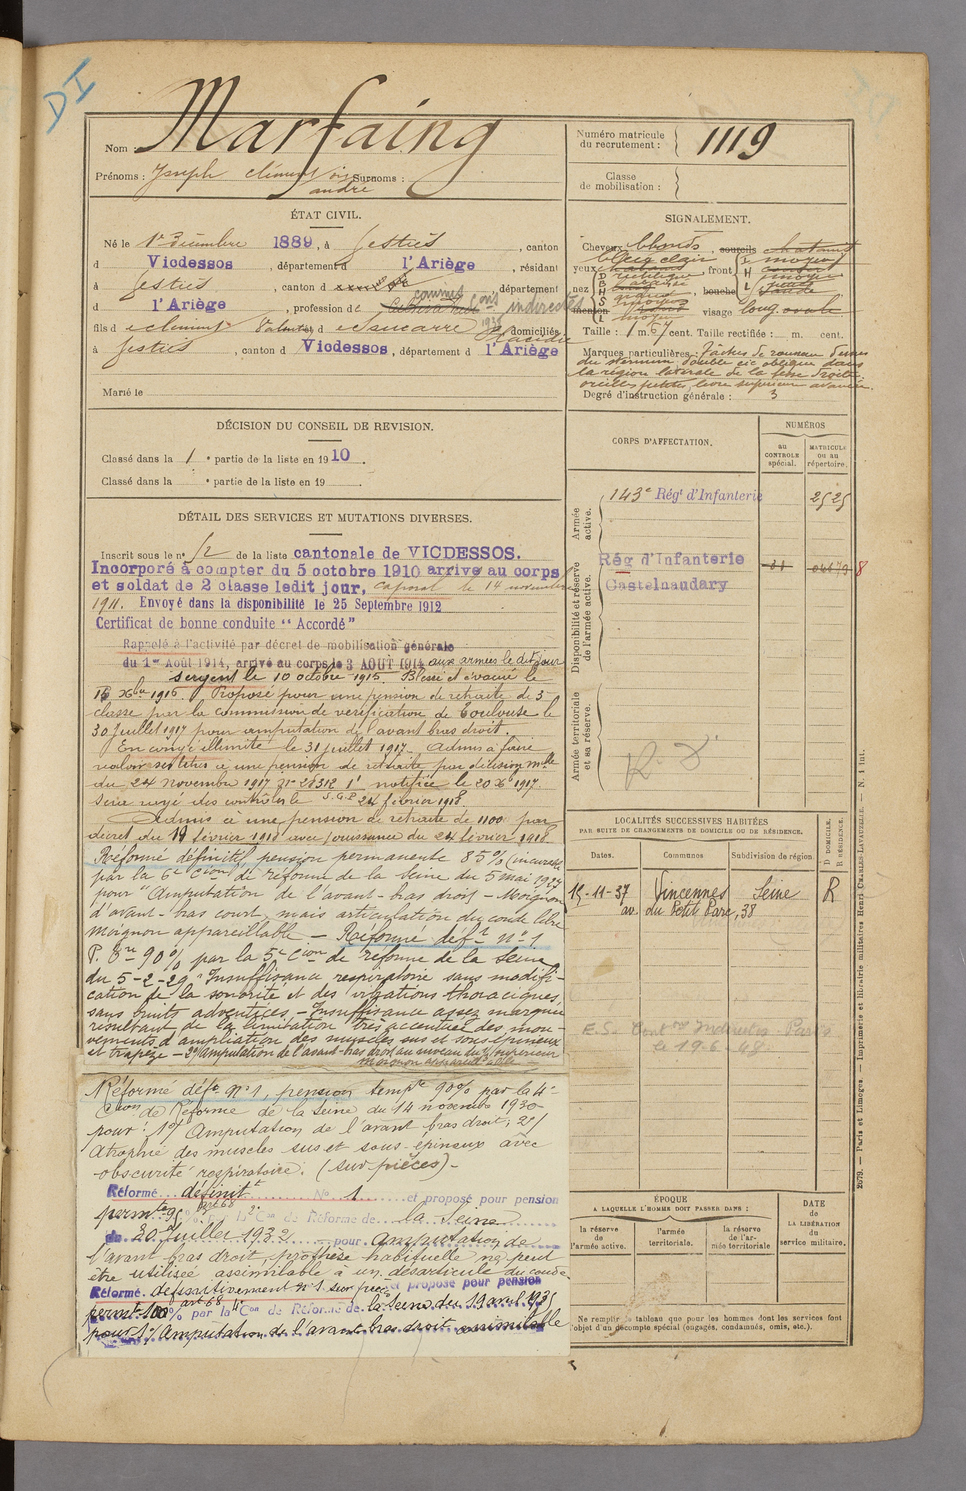 DI
Nom Marfaing
Prénoms : Joseph Clément Surnoms :
andré
ÉTAT CIVIL.
Né le 1er Décembre 1889, à Gestiès, canton
d Vicdessos, département d l'Ariège, résidant
à Gestiès, canton d , département
d l'Ariège, profession de commis Cons indirectes
fils d e Clément et d domiciliés
à Gestiès, canton d Vicdessos, département d l'Ariège
Marié le
DÉCISION DU CONSEIL DE REVISION.
Classé dans la 1e partie de la liste en 1910.
Classé dans la e partie de la liste en 19 .
DÉTAIL DES SERVICES ET MUTATIONS DIVERSES.
Inscrit sous le n° 12 de la liste cantonale de VICDESSOS.
Incorporé à compter du 5 octobre 1910 arrivé au corps
et soldat de 2 classe ledit jour, caporal le 14 novembre
1911. Envoyé dans la disponibilité le 25 Septembre 1912
Certificat de bonne conduite "Accordé"
Rappelé à l'activité par décret de mobilisation générale
du 1er Août 1914, arrivé au corps le 3 AOUT 1914 aux armées le dit jour
sergent le 10 octobre 1915. Blessé et évacué le
Xbre 1916. Proposé pour une pension de retraite de 3e
classe par la commission de vérification de Toulouse le
30 juillet 1917 pour amputation de l'avant bras droit.
En congé illimité le 31 juillet 1917. Admis à faire
valoir ses titres à une pension de retraite par décision mlle
du 24 novembre 1917 n° 28312 1' notifiée le 20 Xe 1917.
Sera rayé des contrôles le 24 février 1918.
Admis à une pension de retraite de 1100 par
décret du 19 février 1918 avec jouissance du 24 février 1918.
Réformé définitif, pension permanente 85%
par la 6e Cion de réforme de la Seine du 5 mai 1927
pour "Amputation de l'avant-bras droit - Moignon
d'avant-bras court, mais articulation du coude libre
moignon appareillable - Réformé déft n° 1.
P. 90% par la 5e Cion de réforme de la Seine
du 5-2-29 "Insuffisance respiratoire sans modifi-
cation de la sonorité et des vibrations thoraciques,
sans bruits adventices. - Insuffisance assez marquée
résultant de la limitation très accentuée des mou-
vements d'ampliation des muscles sus et sous-épineux
et trapèze - 2°/ Amputation de l'avant-bras droit au niveau du 1/3 supérieur
moignon appareillable -
Réformé déft n° 1, pension tempre 90% par la 4e
Cion de Réforme de la Seine du 14 novembre 1930
pour : 1°/ Amputation de l'avant bras droit, 2°/
Atrophie des muscles sus et sous-épineux avec
obscurité respiratoire. (sur pièces) -
Réformé définitt N° 1 et proposé pour pension
permte 95% art 68 par la 2e Con de Réforme de la Seine
du 20 Juillet 1932 pour amputation de
l'avant bras droit, prothèse habituelle ne peut
être utilisée assimilable à un désarticulé du coude
Réformé définitivement n° 1 sur pièces et proposé pour pension
permte 100% art 68 par la 4e Con de Réforme de la Seine du 19 avril 1935
pour 1°/ Amputation de l'avant bras droit assimilable
Numéro matricule
du recrutement : 1119
Classe
de mobilisation :
SIGNALEMENT.
Cheveux blonds, sourcils châtains
yeux bleu clair, front moyen
nez , bouche
menton visage long ovale
Taille : 1 m. 67 cent. Taille rectifiée : m. cent.
Marques particulières : Tâches de rousseur
du sternum double cic oblique dans
la région latérale de la fesse droite.
oreilles petites, lèvre supérieure avancée.
Degré d'instruction générale : 3
CORPS D'AFFECTATION.
NUMÉROS
au CONTROLE spécial.
MATRICULE ou au répertoire.
Armée active.
143e Régt d'Infanterie 2525
Disponibilité et réserve de l'armée active.
Rég d'Infanterie
Castelnaudary
Armée territoriale et sa réserve.
R. D.
LOCALITÉS SUCCESSIVES HABITÉES
PAR SUITE DE CHANGEMENTS DE DOMICILE OU DE RÉSIDENCE.
D DOMICILE. R RÉSIDENCE.
Dates. Communes Subdivision de région
15-11-37 Vincennes Seine R
av. du Petit Parc, 38
E.S. Contons Indirectes - Paris
le 19-6-48
ÉPOQUE
A LAQUELLE L'HOMME DOIT PASSER DANS :
la réserve de l'armée active.
l'armée territoriale.
la réserve de l'armée territoriale
DATE de LA LIBÉRATION du service militaire.
Ne remplir ce tableau que pour les hommes dont les services font
l'objet d'un décompte spécial (engagés, condamnés, omis, etc.).
2579. — Paris et Limoges. — Imprimerie et librairie militaires Henri CHARLES-LAVAUZELLE. — N. 1 int.